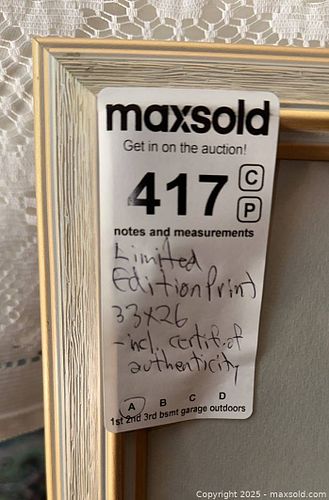 maxsold
Get in on the auction!
417 C
P
notes and measurements
Limited
Edition Print
33x26
- incl. certif. of
authenticity
A B C D
1st 2nd 3rd bsmt garage outdoors
Copyright 2025 - maxsold.com